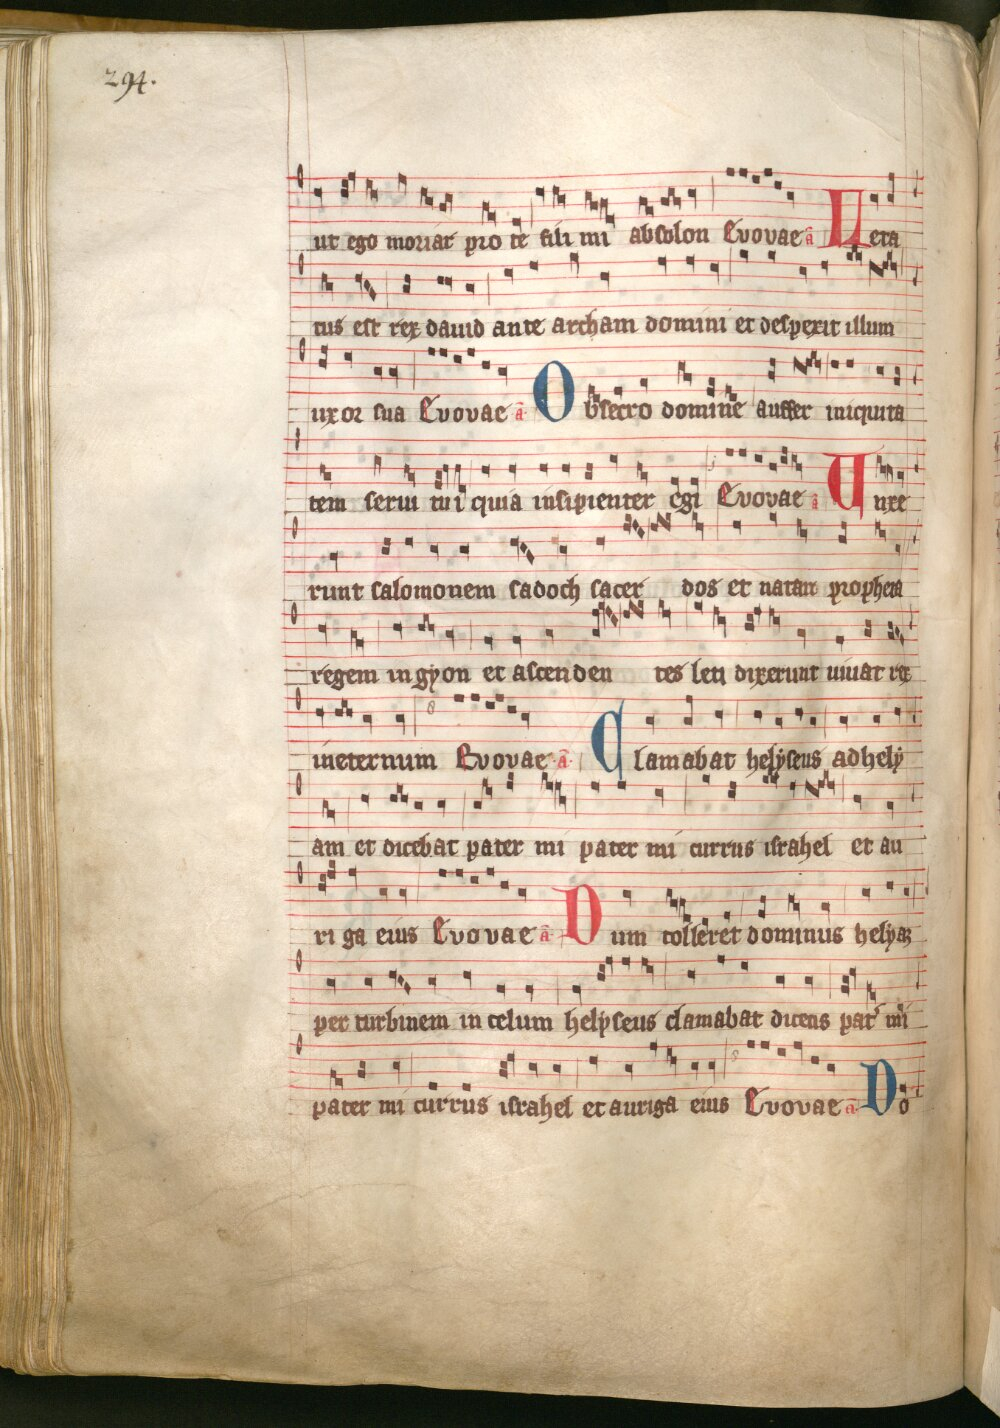 294.
ut ego moriar pro te fili mi absolon Evovae a̅ Leta
tus est rex dauid ante archam domini et despexit illum
uxor sua Evovae a̅ Obsecro domine auffer iniquita
tem serui tui quia insipienter egi Evovae a̅ Unxe
runt salomonem sadoch sacerdos et natan propheta
regem in gyon et ascendentes leti dixerunt uiuat rex
ineternum Evovae a̅ Clamabat helyseus ad hely
am et dicebat pater mi pater mi currus israhel et au
riga eius Evovae a̅ Dum tolleret dominus helyam
per turbinem in celum helyseus clamabat dicens pat' mi
pater mi currus israhel et auriga eius Evovae a̅ Do